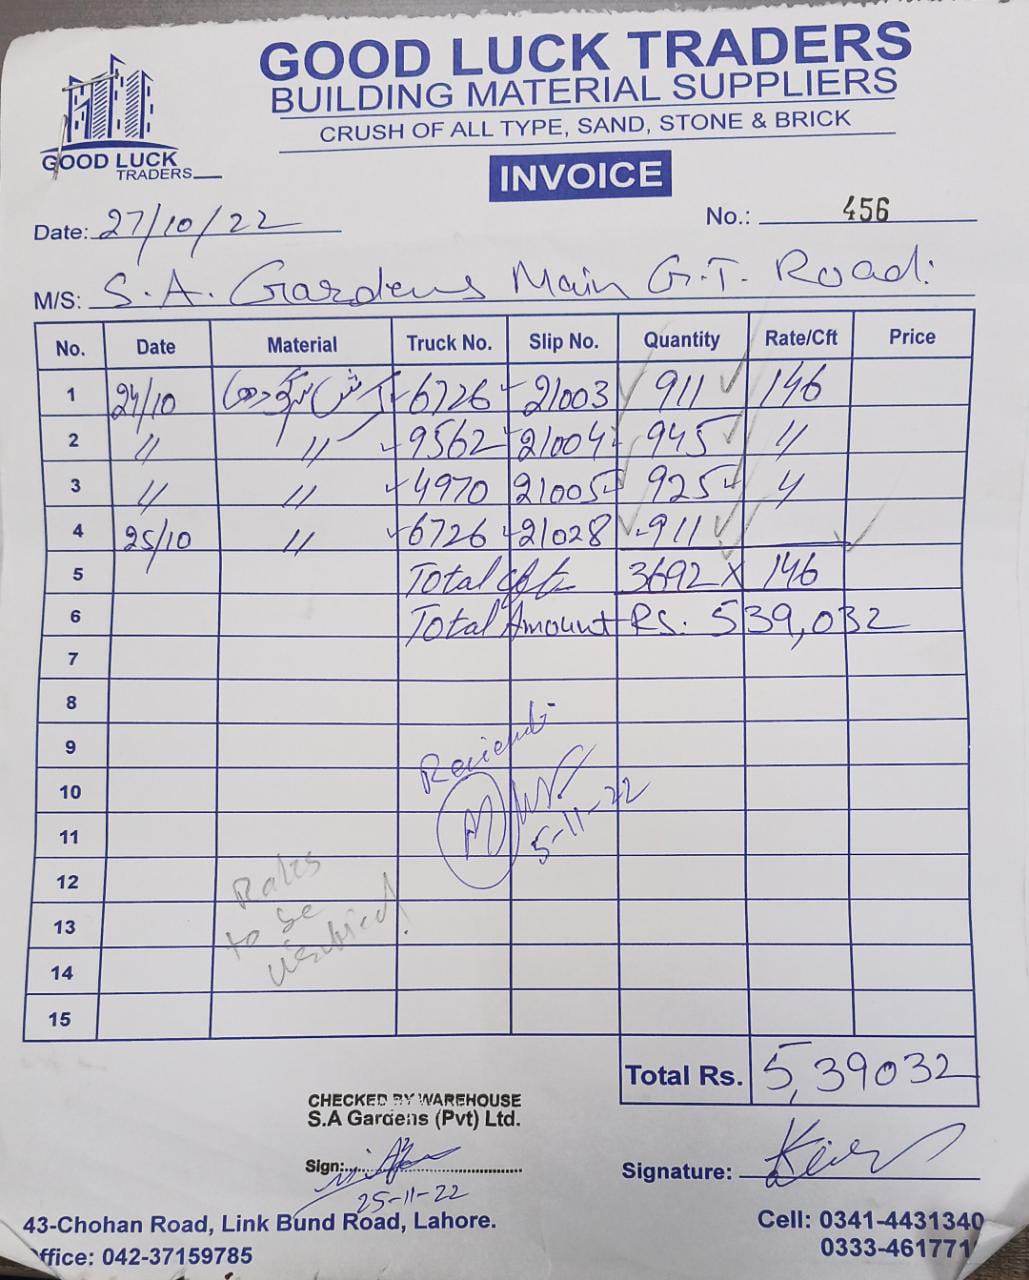 GOOD LUCK TRADERS
BUILDING MATERIAL SUPPLIERS
CRUSH OF ALL TYPE, SAND, STONE & BRICK
GOOD LUCK
TRADERS
INVOICE
Date: 27/10/22 No.: 456
M/S: S.A. Gardens Main G.T. Road.
No. Date Material Truck No. Slip No. Quantity Rate/Cft Price
1 24/10 کرش سرگودھا 6726 21003 911 146
2 // // 9562 21004 945 //
3 // // 4970 21005 925 //
4 25/10 // 6726 21028 911
5 Total cft 3692 x 146
6 Total Amount Rs. 539,032
7
8
9
10
11
12
13
14
15
Received
5-11-22
Rates
to be
verified!
Total Rs. 5,39032
CHECKED BY WAREHOUSE
S.A Gardens (Pvt) Ltd.
Sign:
25-11-22
Signature:
43-Chohan Road, Link Bund Road, Lahore.
ffice: 042-37159785
Cell: 0341-4431340
0333-461771